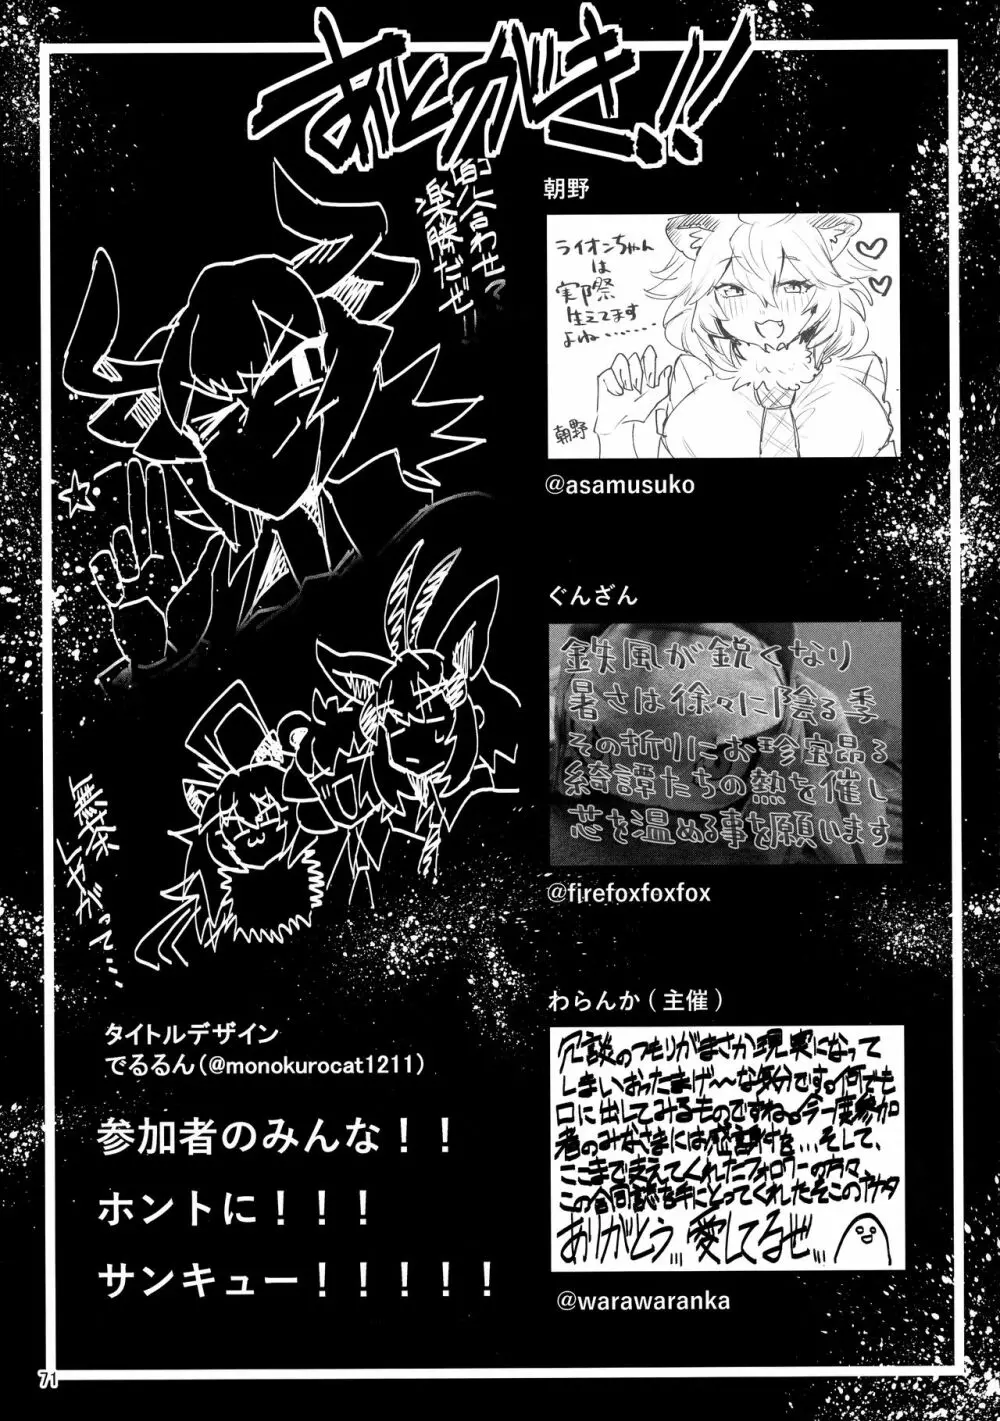 あとがき!!
顔合わせ?
楽勝だぜ!!
無茶
しやがって…
タイトルデザイン
でるるん(@monokurocat1211)
参加者のみんな!!
ホントに!!!
サンキュー!!!!!
朝野
ライオンちゃん
は
実際
生えてます
よね………
朝野
@asamusuko
ぐんざん
鉄風が鋭くなり
暑さは徐々に陰る季
その折りにお珍宝昂る
綺譚たちの熱を催し
芯を温める事を願います
@firefoxfoxfox
わらんか(主催)
冗談のつもりがまさか現実になって
しまいおったまげ〜〜な気分です。何でも
口に出してみるものですね。今一度参加
者のみなさまには感謝を…そして、
ここまで支えてくれたフォロワーの方々、
この合同誌を手にとってくれたそこのアナタ
ありがとう!!!愛してるぜ!!!
@warawaranka
71